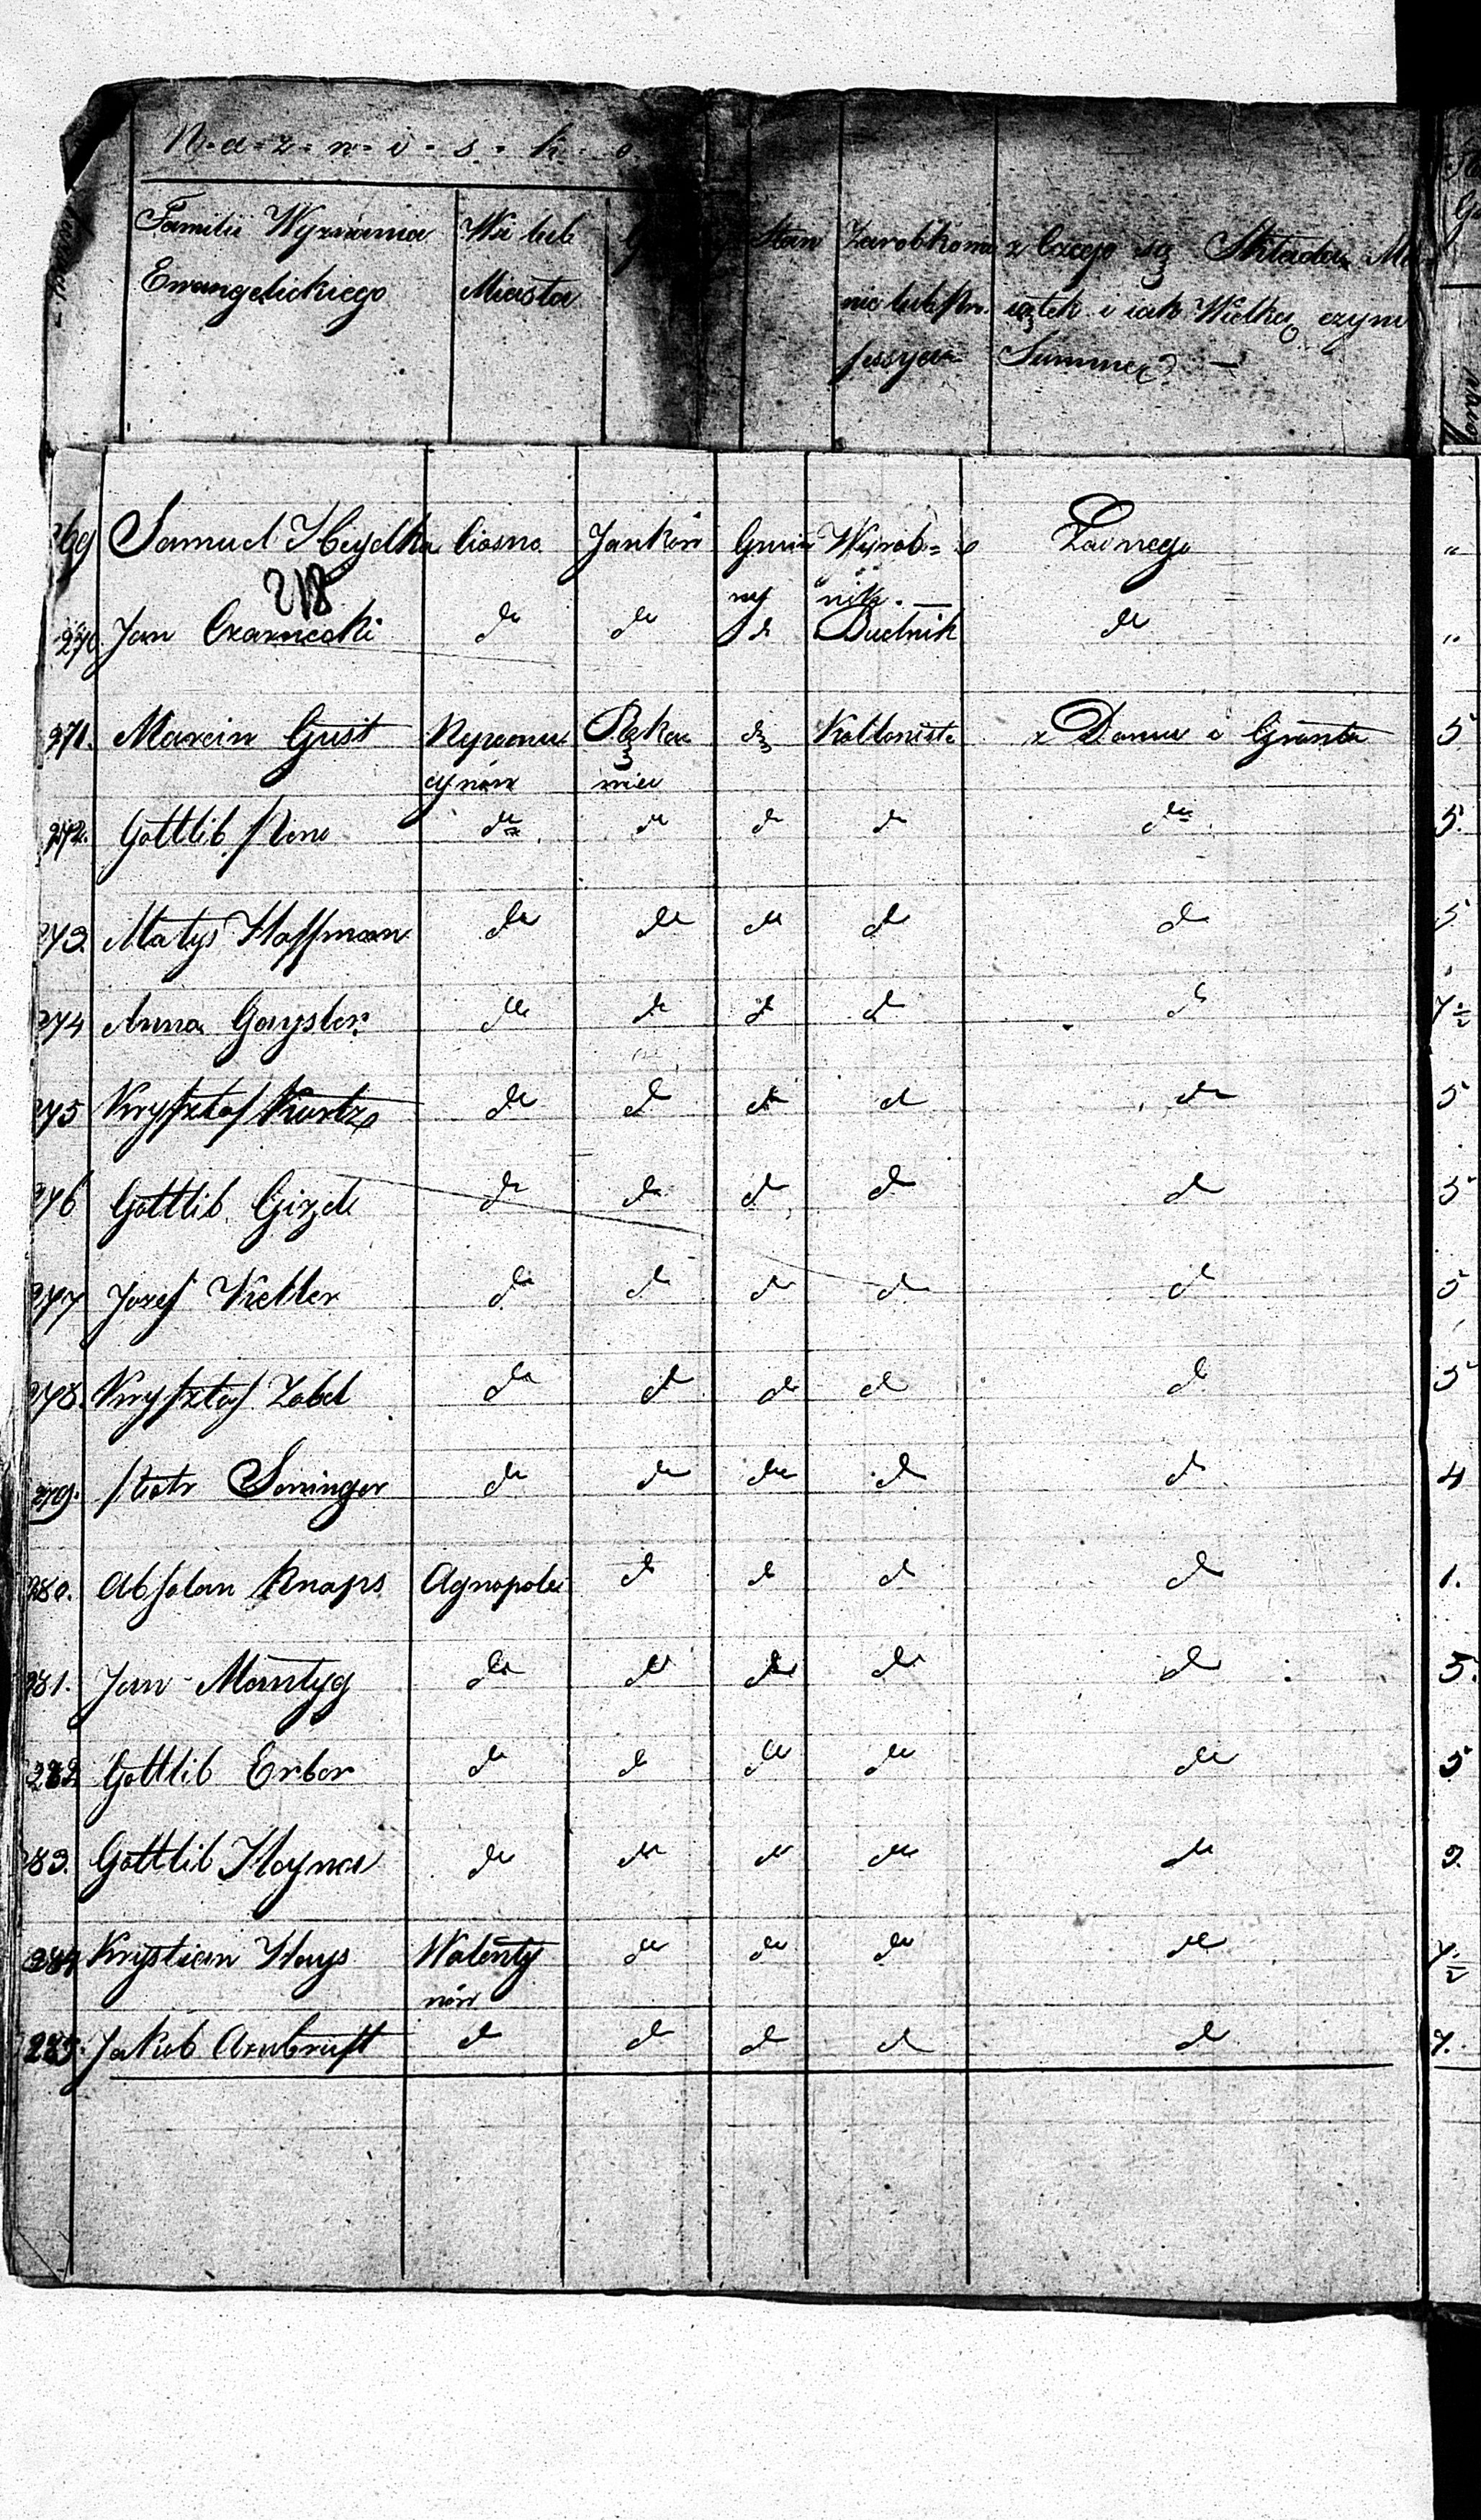 N=a=z=w=i=s=k=o
Familii Wyznania Wsi lub Stan Zarobkowa z Czego się Składa Ma=
Ewangelickiego Miasta nie lub Pro= iątek i iak Wielką czyni
fessya Summę? —
269 Samuel Heydka Ciosno Janków Gmin Wyrob= Żadnego "
218
ny nik. —
270 Jan Czarnecki do do do Budnik do "
271. Marcin Gust Rypanu Kollonista z Domu i Gruntu 5
cynów
272. Gottlib do do do do do 5.
273. Matys Hoffman do do do do do 5
274 Anna Gayster do do do do do 7½
275 Krysztof Kurtz do do do do do 5
276 Gottlib Gizde do do do do do 5
277 Jozef Kiebler do do do do do 5
278. Krysztof Zabel do do do do do 5
279. Piotr Seninger do do do do do 4
280. Absolon Knaps Agnopole do do do do 1.
281. Jan Mantyg do do do do do 5.
282 Gottlib Erber do do do do do 5
283. Gottlib Hayna do do do do do 3.
284 Krystian Hays Walenty do do do do 7½
nów
285. Jakub Arnbrust do do do do do 7.